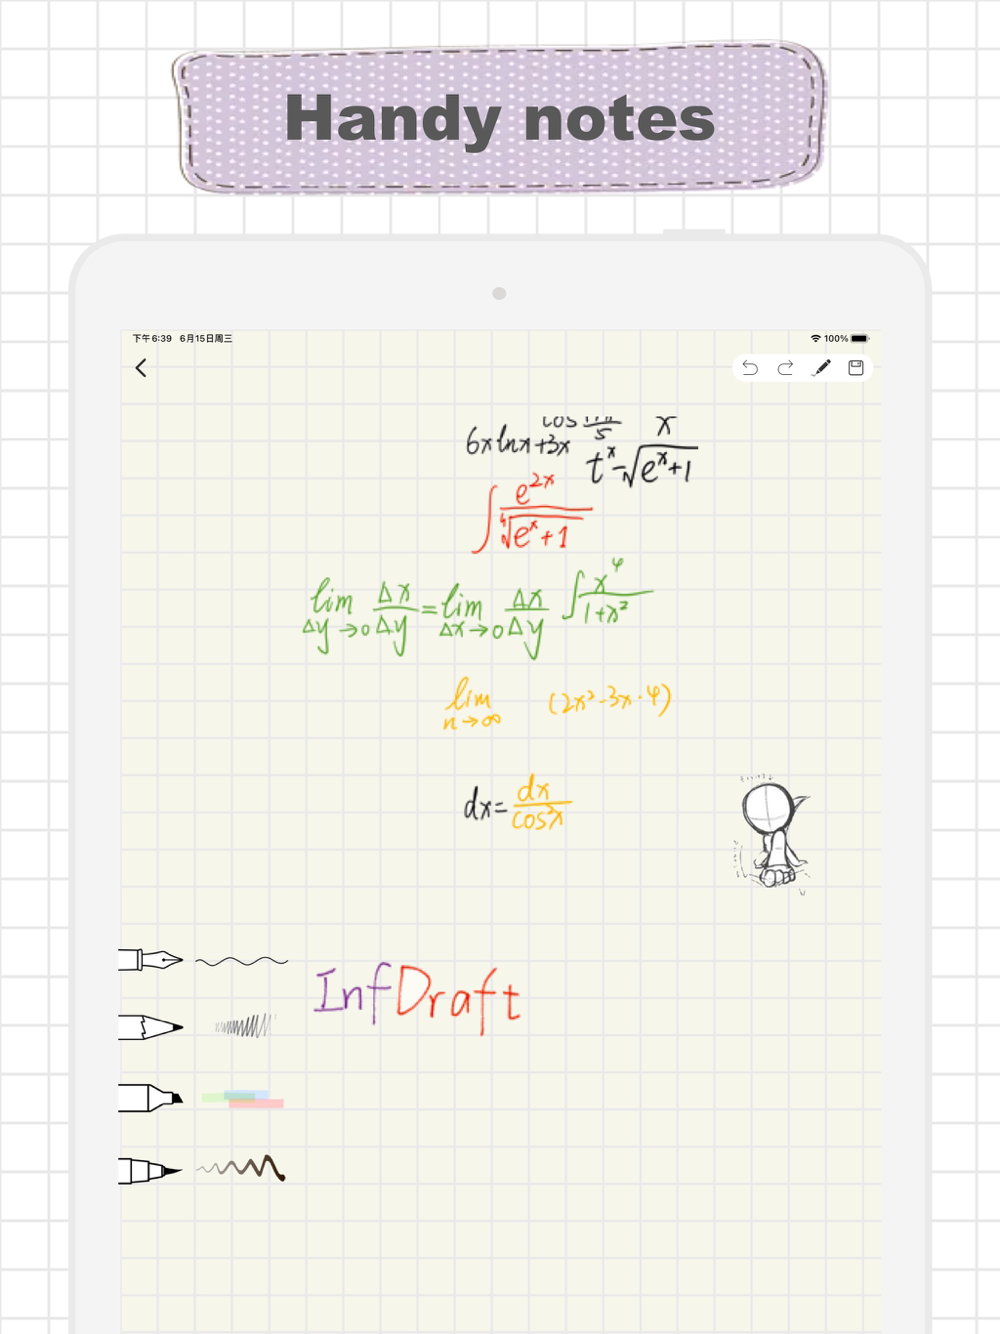 Handy notes
下午6:39 6月15日周三 100%
cos
5
x
6x lnx+3x
t^x-√(e^x+1)
∫ e^2x / ∜(e^x+1)
lim Δy→0 Δx/Δy = lim Δx→0 Δx/Δy ∫ x^4/(1+x^2)
lim n→∞ (2x^2-3x·4)
dx= dx/cos^2x
InfDraft